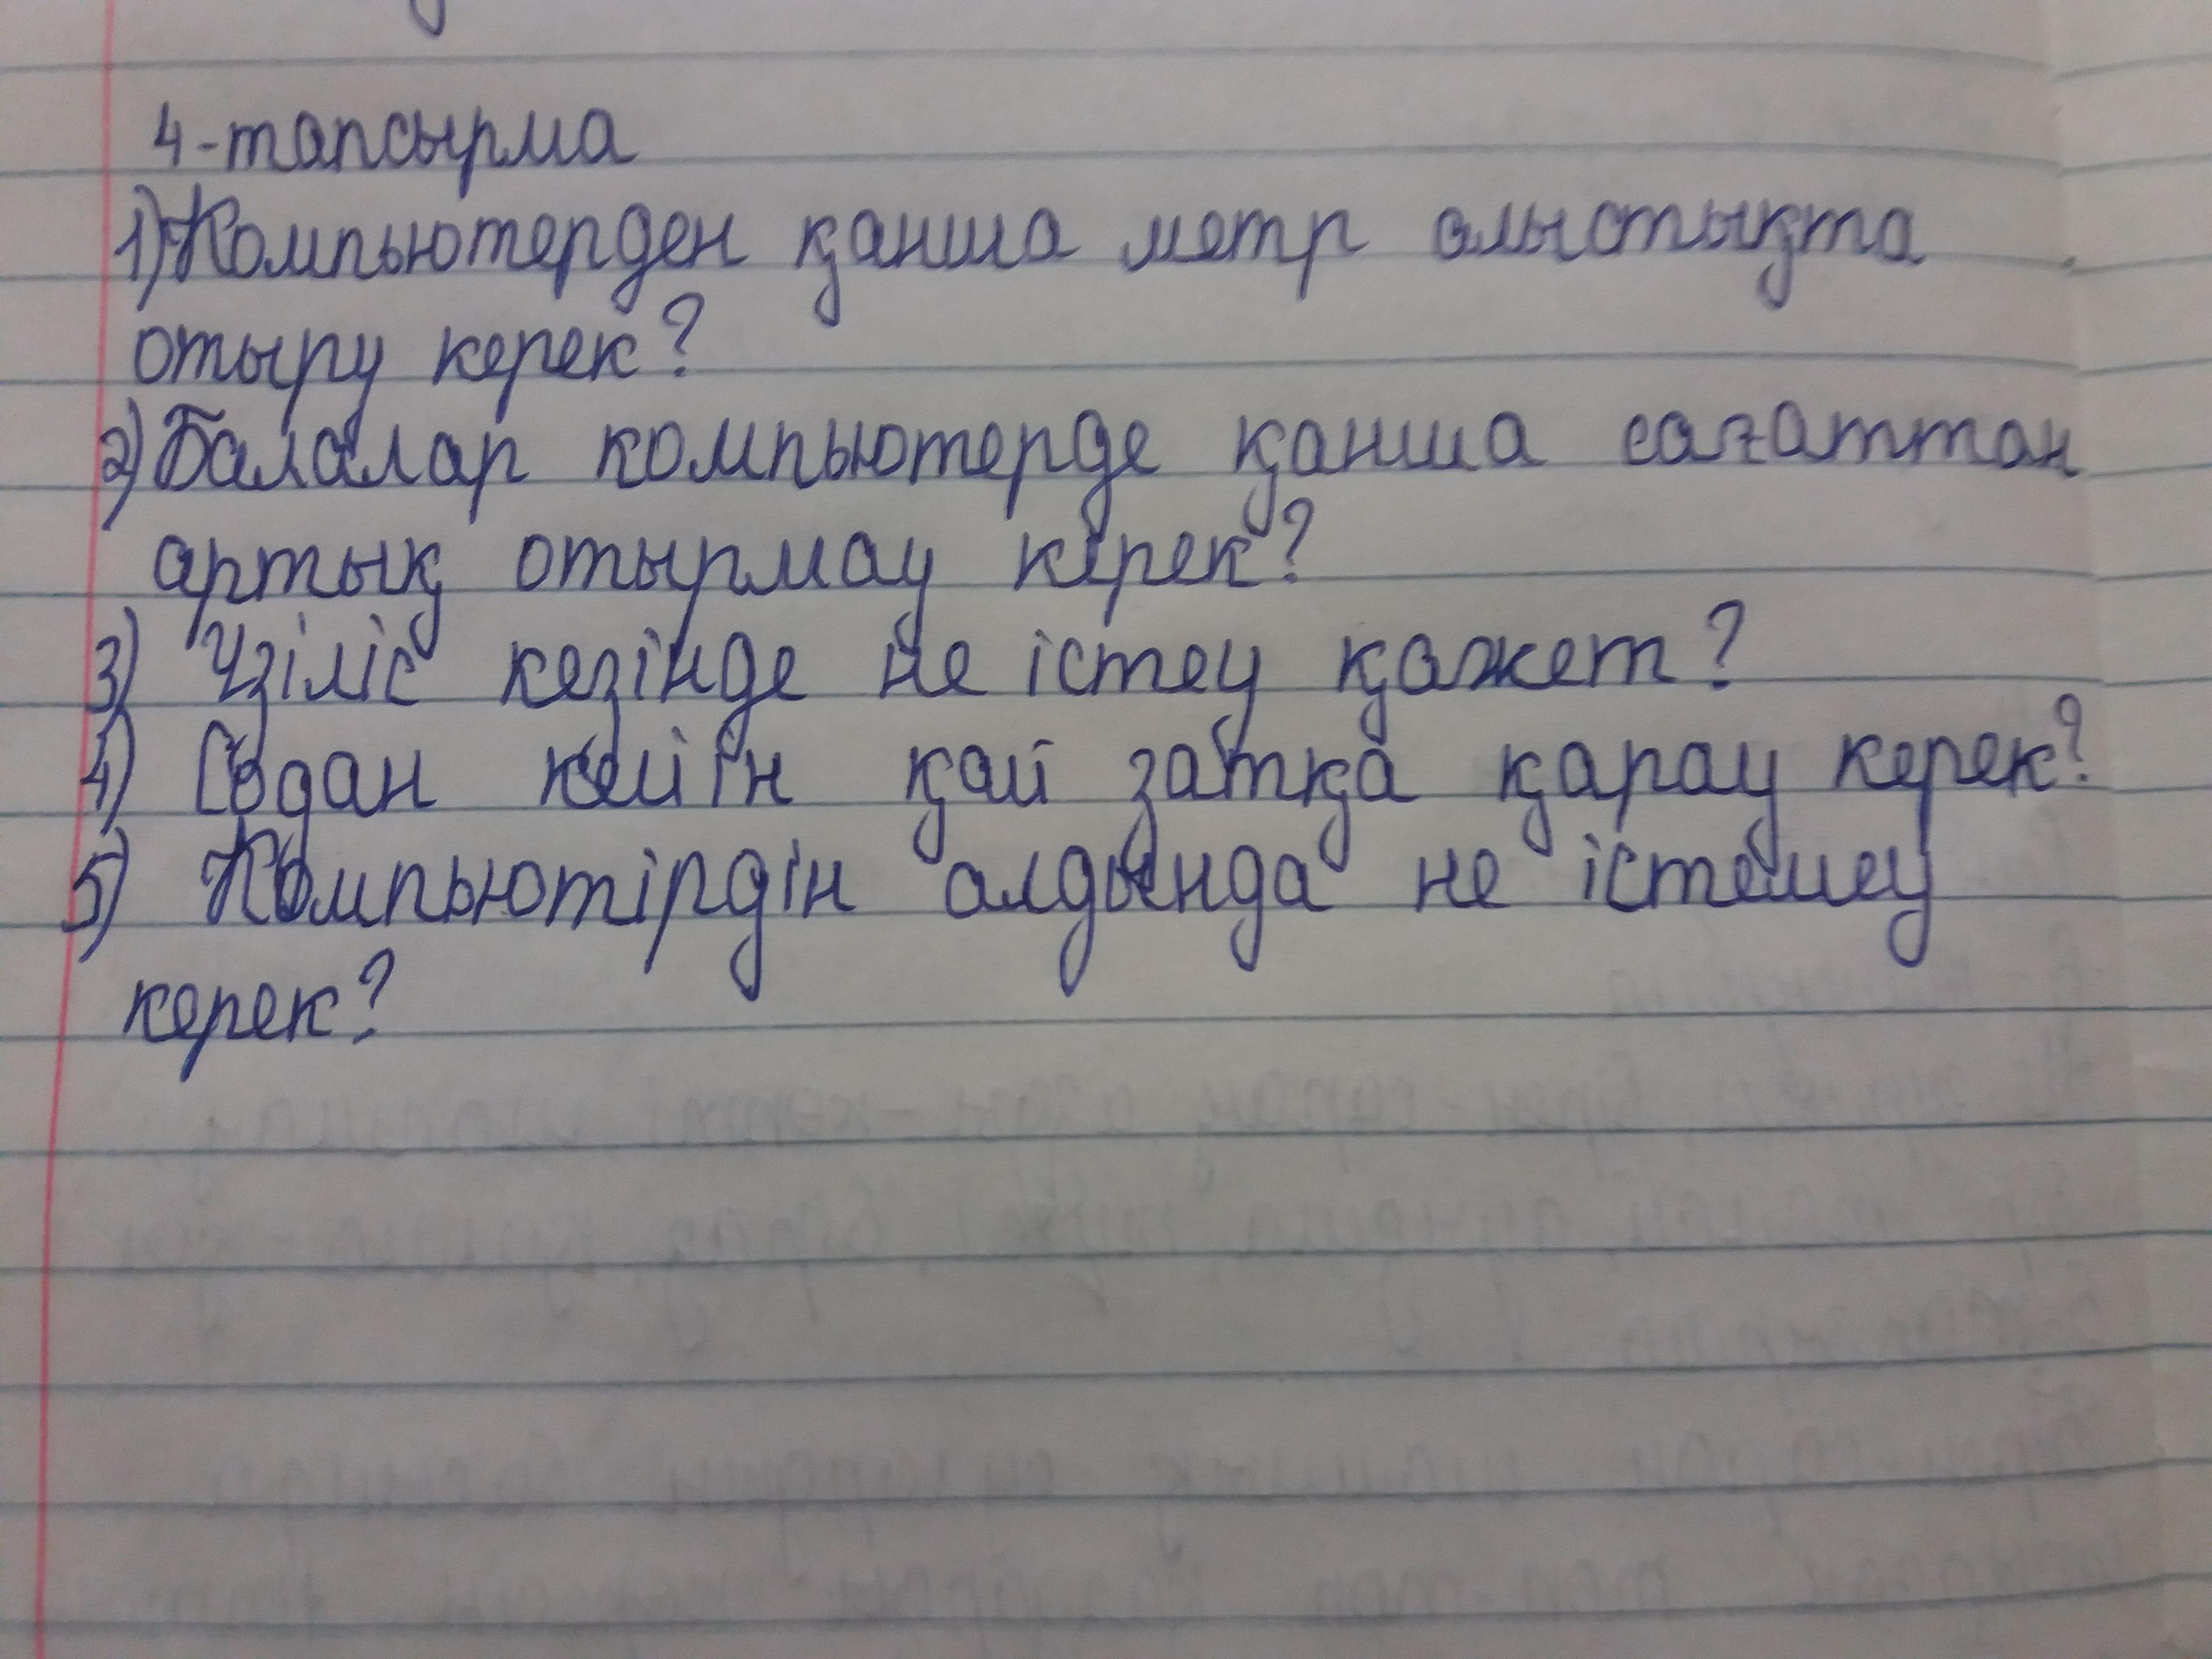 4-тапсырма
1) Компьютерден қанша метр алыстықта
отыру керек?
2) Балалар компьютерде қанша сағаттан
артық отырмау керек?
3) Үзіліс кезінде не істеу қажет?
4) Содан кейін қай затқа қарау керек?
5) Компьютірдін алдында не істемеу
керек?